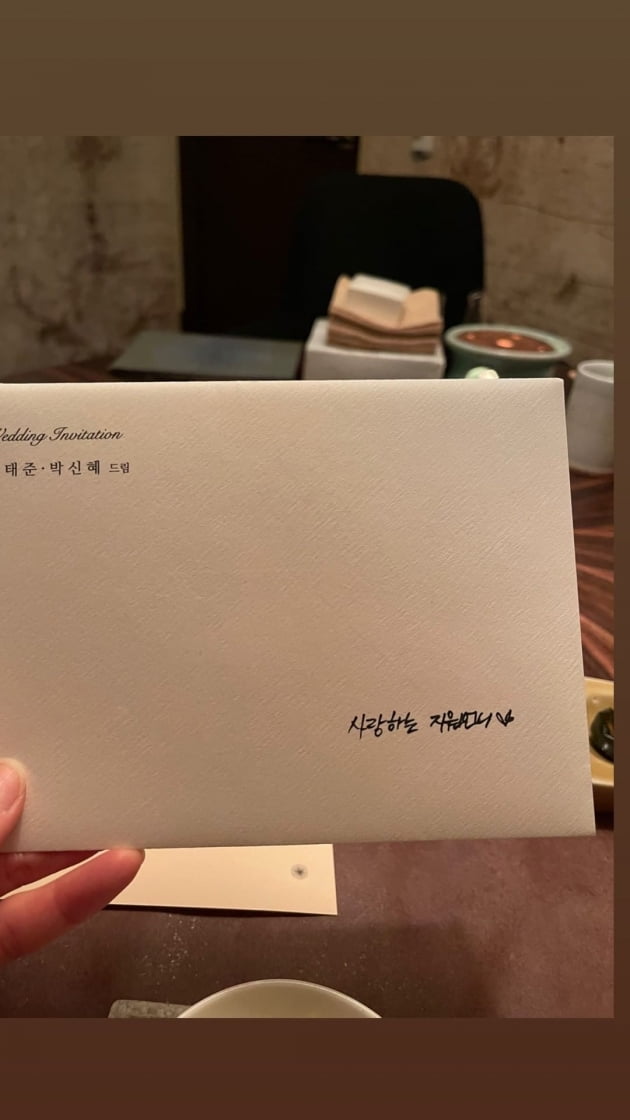 Wedding Invitation
태준·박신혜 드림
사랑하는 지원언니♡